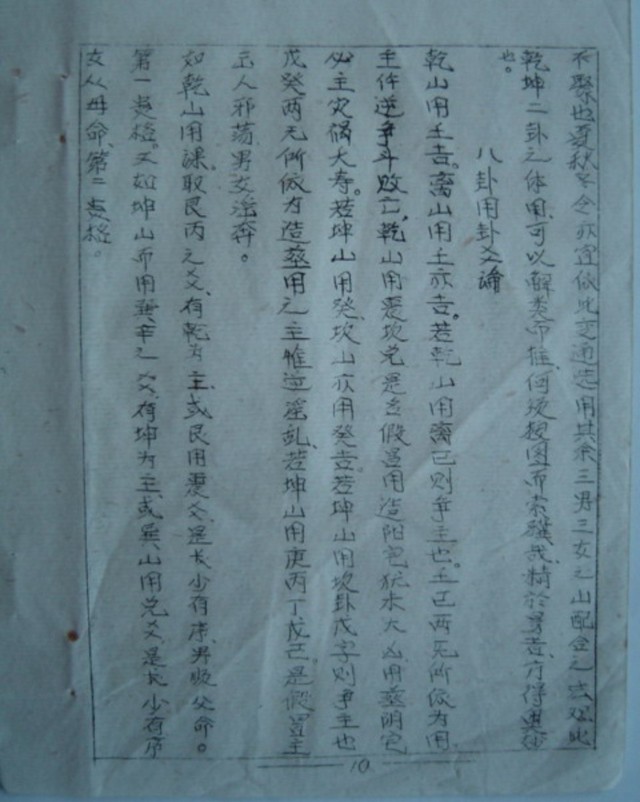 不聚也夏秋冬令亦宜依此变通选用其余三男三女之山配合之法似此
乾坤二卦之体用可以解类而推何须按图而索骥哉精於易者方得其妙
也。
八卦用卦爻论
乾山用壬吉。离山用壬亦吉。若乾山用离己则争主也。壬己两无所依为用
主忤逆争斗败亡，乾山用震坎兄是言假置用造阳宅犹未大凶用葬阴宅
必主灾祸大寿。若坤山用癸坎山亦用癸吉。若坤山用坎卦戊字则争主也
戊癸两无所依为造葬用之主悖逆淫乱，若坤山用庚丙丁戊己。是假置主
主人邪荡男女淫奔。
如乾山用课。取艮丙之爻，有乾为主，或艮用震爻，是长少有序，男顺父命。
第一贵格。又如坤山而用巽辛之爻，有坤为主或巽山用兑爻，是长少有序
女从母命，第二贵格。
10